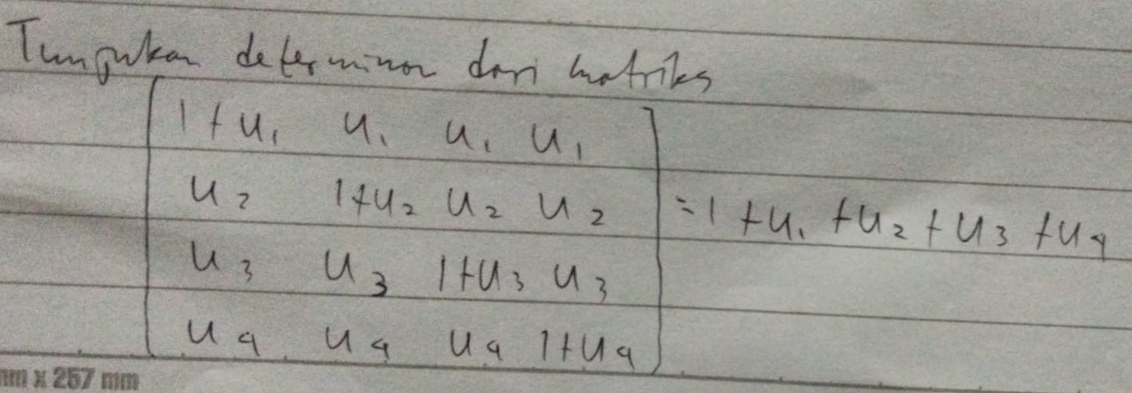 Tunjukan determinan dari matriks
1+u₁ u₁ u₁ u₁
u₂ 1+u₂ u₂ u₂ = 1 + u₁ + u₂ + u₃ + u₄
u₃ u₃ 1+u₃ u₃
u₄ u₄ u₄ 1+u₄
mm x 257 mm